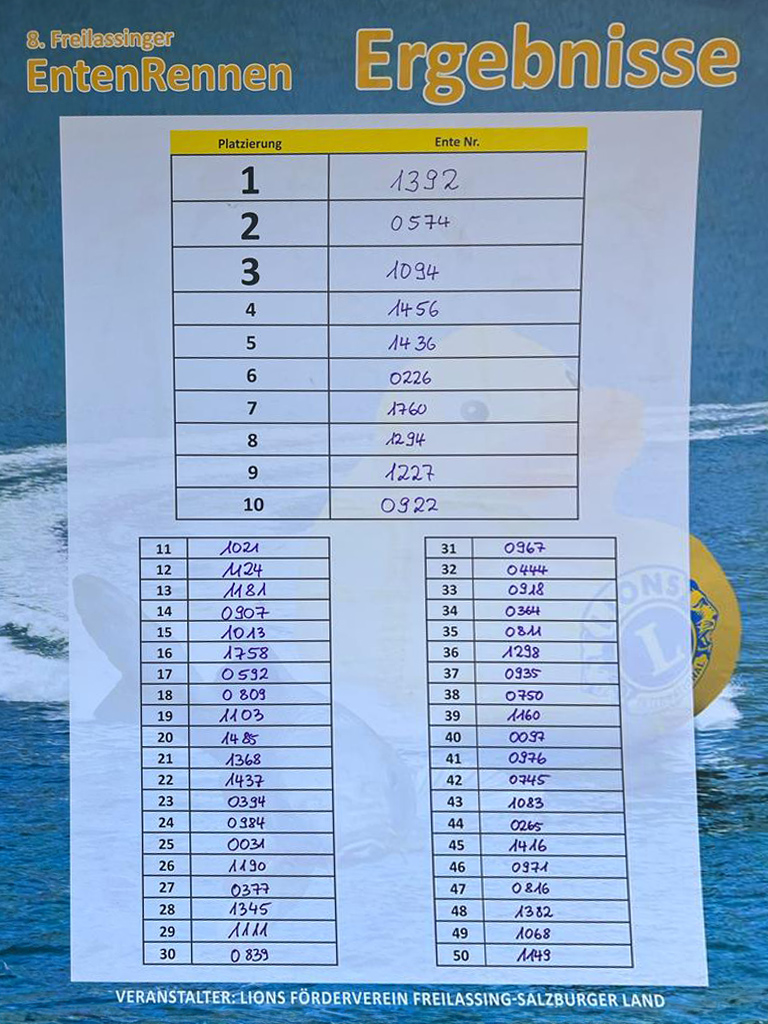 8. Freilassinger
EntenRennen
Ergebnisse
Platzierung Ente Nr.
1 1392
2 0574
3 1094
4 1456
5 1436
6 0226
7 1760
8 1294
9 1227
10 0922
11 1021
12 1124
13 1181
14 0907
15 1013
16 1758
17 0592
18 0809
19 1103
20 1485
21 1368
22 1437
23 0394
24 0984
25 0031
26 1190
27 0377
28 1345
29 1111
30 0839
31 0967
32 0444
33 0918
34 0364
35 0811
36 1298
37 0935
38 0750
39 1160
40 0097
41 0976
42 0745
43 1083
44 0265
45 1416
46 0971
47 0816
48 1382
49 1068
50 1149
LIONS
L
INTERNATIONAL
VERANSTALTER: LIONS FÖRDERVEREIN FREILASSING-SALZBURGER LAND